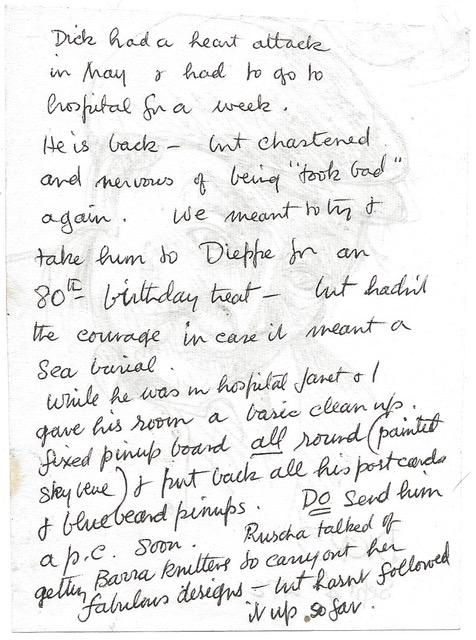 Dick had a heart attack
in May & had to go to
hospital for a week.
He is back – but chastened
and nervous of being "took bad"
again. We meant to try &
take him to Dieppe for an
80th birthday treat – but hadn't
the courage in case it meant a
Sea burial.
While he was in hospital Janet & I
gave his room a basic clean up.
fixed pinup board all round (painted
sky blue) & put back all his postcards
& bluebeard pinups. DO send him
a p.c. soon. Ruscha talked of
getting Barra Knitters to carry out her
fabulous designs – but hasn't followed
it up so far.